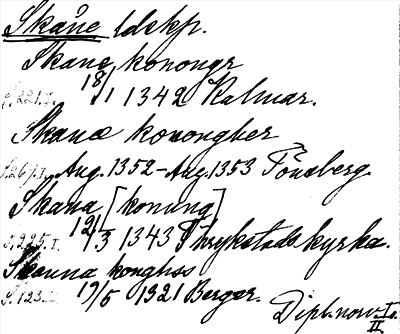 Skåne ldskp.
Skane konongr
S. 221. I. 18/1 1342 Kalmar.
Skanæ konongher
S. 267. I. Aug. 1352 - Aug. 1353 Tönsberg.
Skana [konung]
S. 225. I. 12/3 1343 Thrykstada kyrka.
Skauna konghss
S. 123. 19/6 1321 Berger.
Dipl. norv. I o.
II